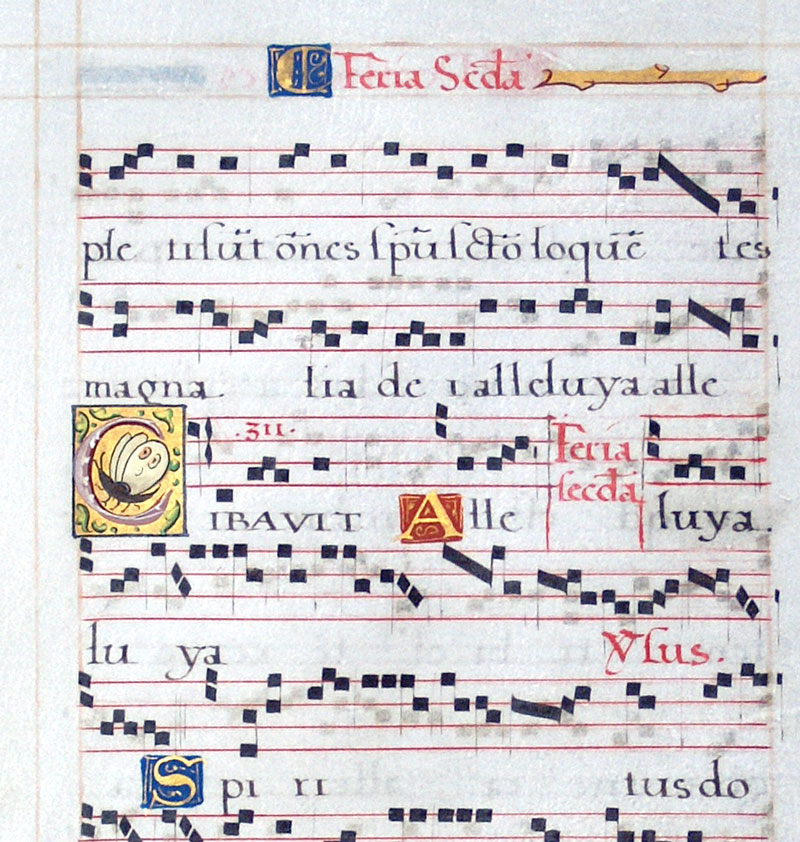 Feria Scđa
ple ti sūt ōnes spū sctō loquē tes
magna lia de i alleluya alle
CIBAVIT Alle Feria secđa luya.
lu ya ℣sus.
Spi ri tus do